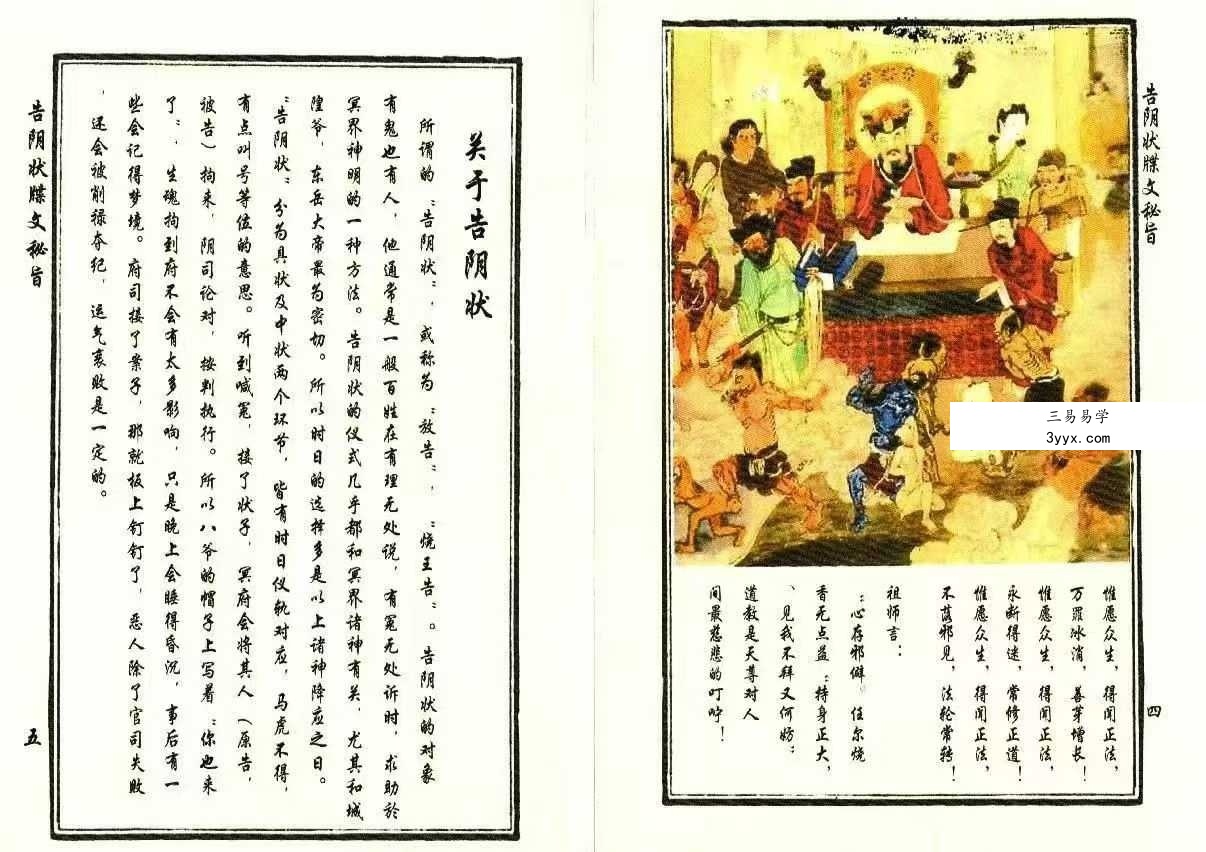 告阴状牒文秘旨
三易易学
3yyx.com
惟愿众生，得闻正法，
万罪冰消，善芽增长！
惟愿众生，得闻正法，
永断得迷，常修正道！
惟愿众生，得闻正法，
不落邪见，法轮常转！
祖师言：
：心存邪僻。任尔烧
香无点益：持身正大，
、见我不拜又何妨：
道教是天尊对人
间最慈悲的叮咛！
四
关于告阴状
所谓的“告阴状”，或称为“放告”，“烧王告”。告阴状的对象
有鬼也有人，他通常是一般百姓在有理无处说，有冤无处诉时，求助於
冥界神明的一种方法。告阴状的仪式几乎都和冥界诸神有关，尤其和城
隍爷，东岳大帝最为密切。所以时日的选择多是以上诸神降应之日。
“告阴状”分为具状及申状两个环节，皆有时日仪轨对应，马虎不得，
有点叫号等位的意思。听到喊冤，接了状子，冥府会将其人（原告，
被告）拘来，阴司论对，按判执行。所以八爷的帽子上写着“你也来
了”，生魂拘到府不会有太多影响，只是晚上会睡得昏沉，事后有一
些会记得梦境。府司接了案子，那就板上钉钉了，恶人除了官司失败
，还会被削禄夺纪，运气衰败是一定的。
告阴状牒文秘旨
五